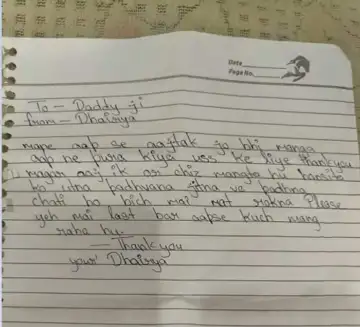 Date
Page No.
To - Daddy ji
from - Dhairya
mane aap se aajtak jo bhi manga
aap ne pura kiya uss ke liye thankyou
magar aaj ik or chiz mangta hu hansita
ko utna padhvana jitna vo padhna
chati ho bich mai mat rokna Please
yeh mai last bar aapse kuch mang
raha hu.
- Thank you
your Dhairya